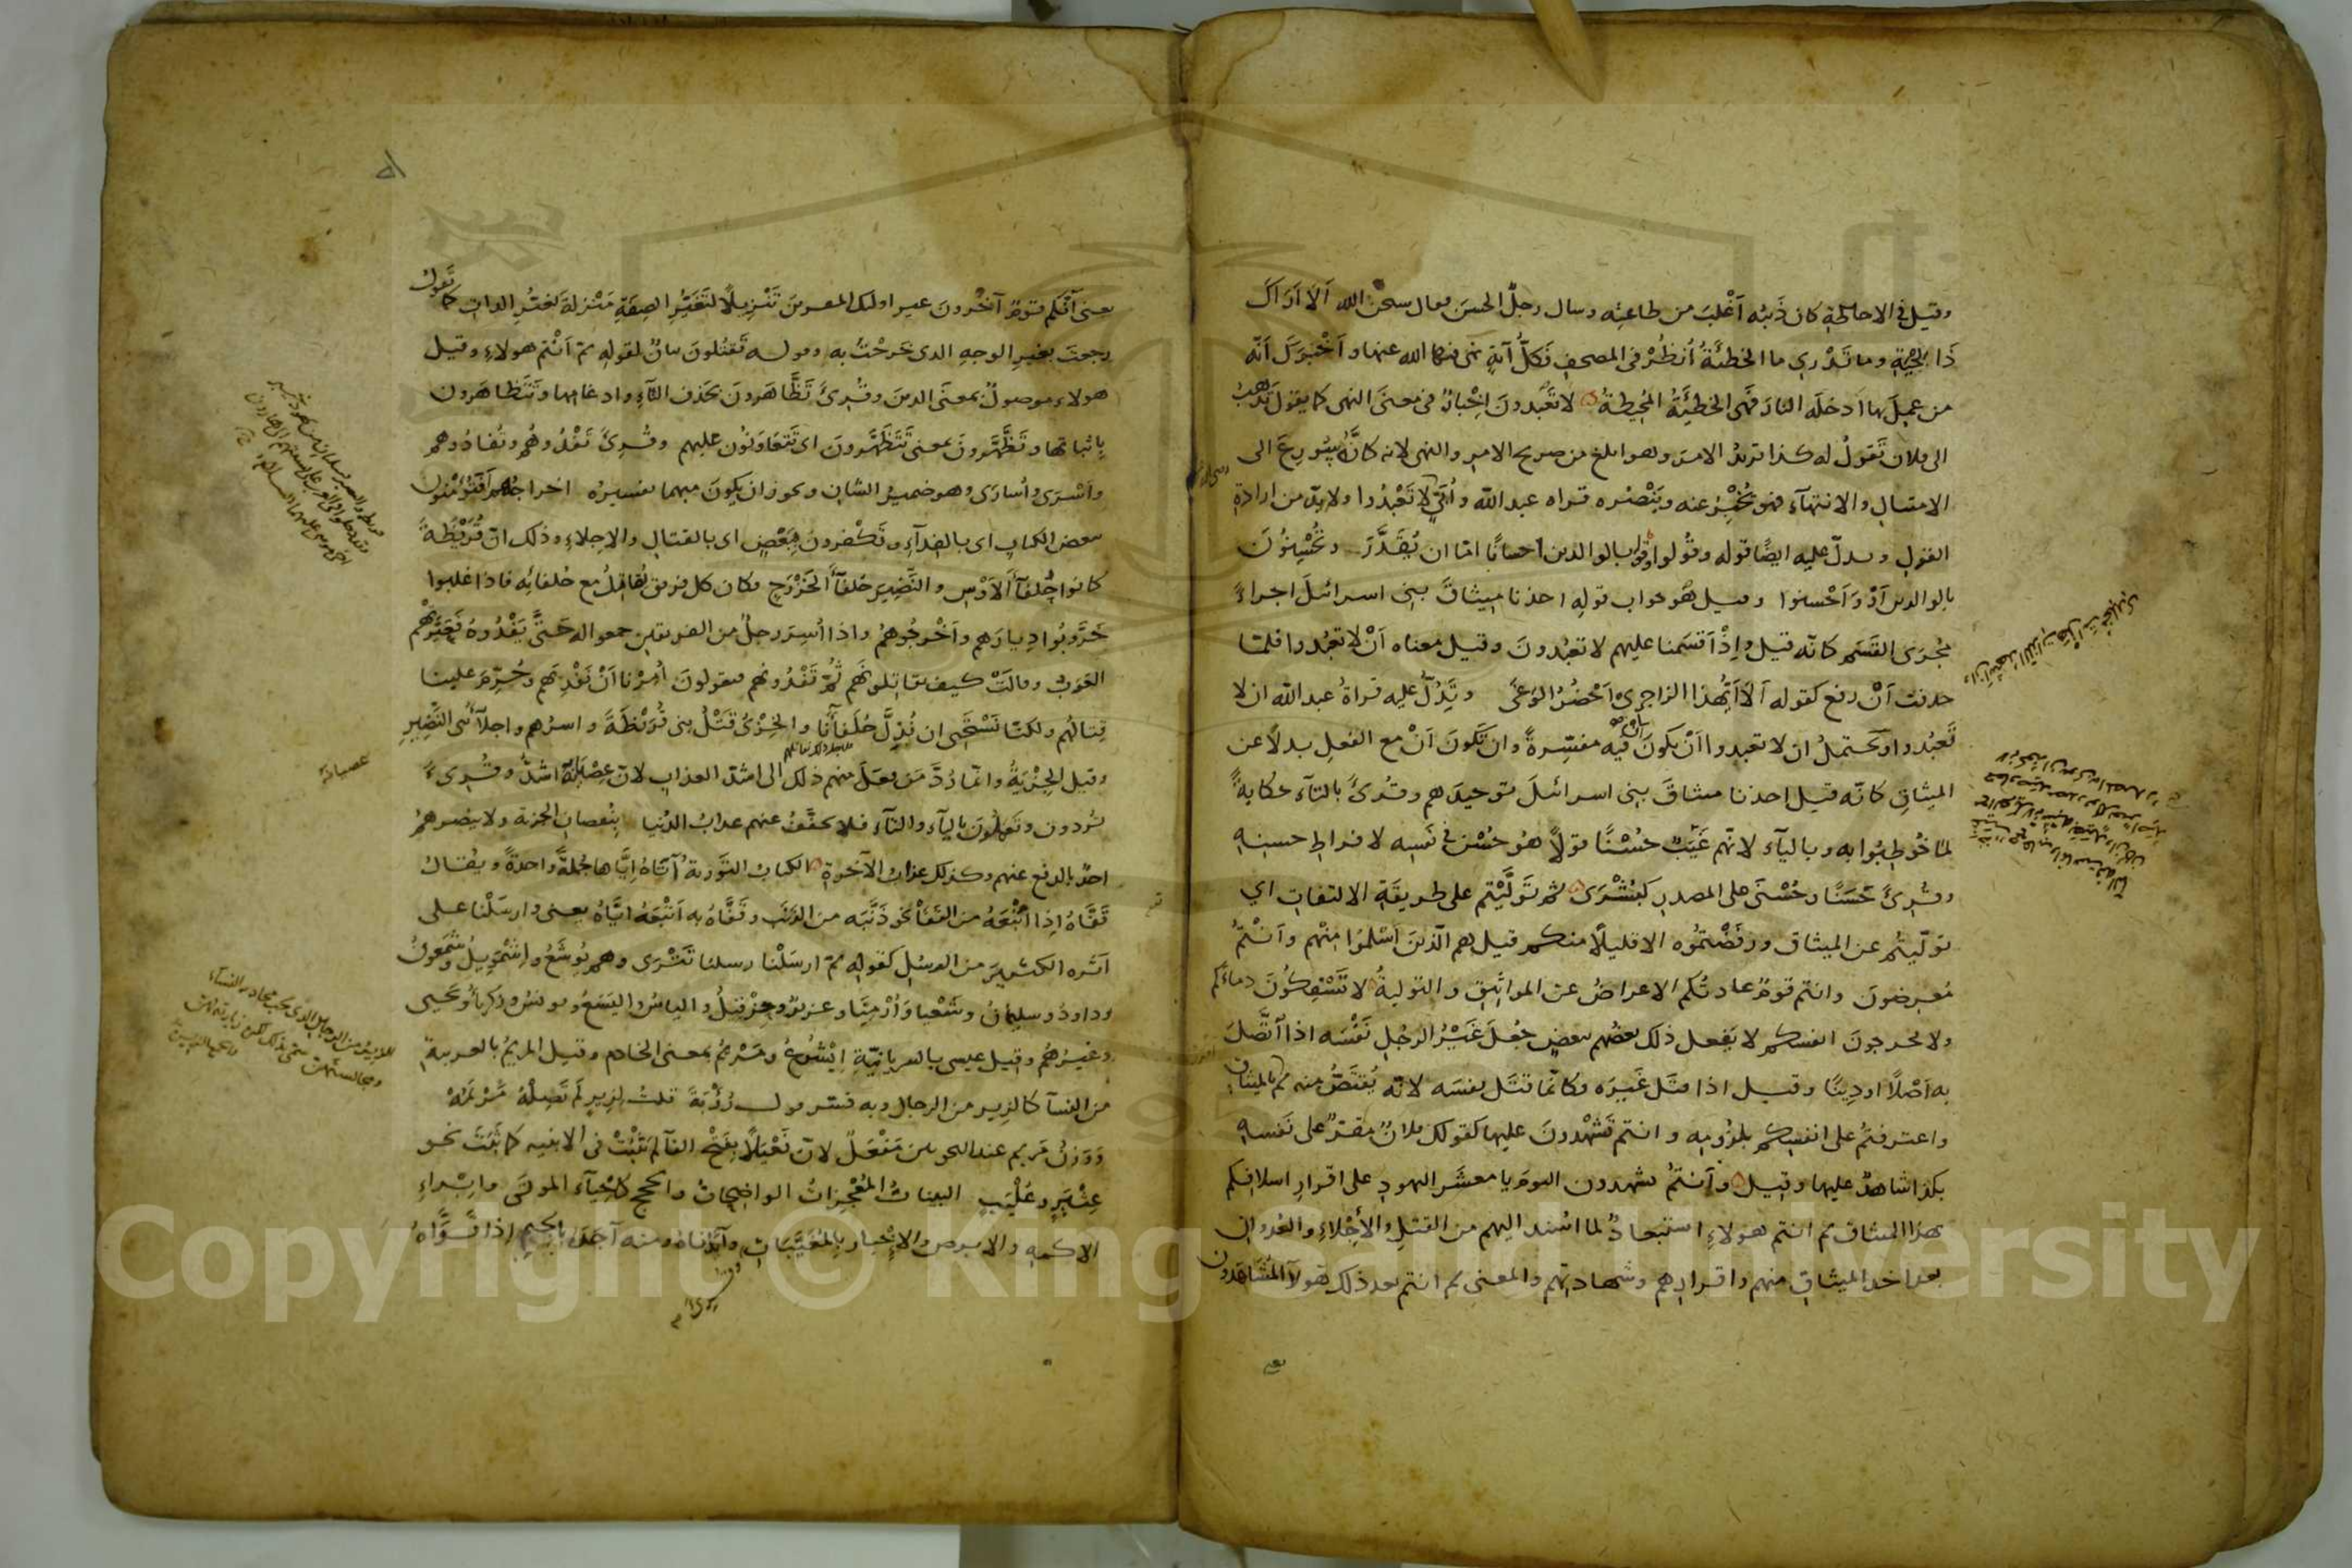 وقيل في الاحاطة كان ذَنبُه اَغْلبَ من طاعتِه وسال رجلٌ الحسَنَ فقال سبحن الله اَلا اَرَاكَ
ذَا لِحْيةٍ وما تَدْري ما الخطئَةُ اُنظُرْ في المصحف فَكلُّ آيةٍ نهى فيها الله عنها و اَخْبَرَكَ اَنّه
من عمِلَ بها اَدخلَه النارَ فهى الخطيْئَةُ المُحِيطةُ لا تَعْبُدونَ اِخْبارٌ في معنَى النهى كما يقول تَذْهبُ
الى فلان تَقولُ له كذا تريدُ الامرَ وهو ابلغ من صريح الامرِ والنهى لانه كانَّه سُورِعَ الى
الامتثالِ والانتهآءِ فهو يُخْبِرُ عنه ويَنْصُره قراه عبد الله و اُبَيٍّ لا تَعْبُدُوا ولابدّ من ارادة
القولِ ويدلّ عليه ايضًا قوله وقُولوا وقوله بالوالدين احسانًا امّا ان يُقدَّرَ وتُحْسِنُونَ
بالوالدين اَوْ وَاَحْسنوا وقيل هو جواب قوله اخذنا ميثاقَ بنى اسرائلَ اجراءً
مُجرَى القَسَم كانّه قيل واِذْ اَقسَمنا عليهم لا تعبُدونَ وقيل معناه اَنْ لا تعبُدوا فلمّا
حذفت اَنْ رفع كقوله اَلاَ اَيُّهذا الزاجرِىْ اَحْضُرُ الوَغَى ويَدُلُّ عليه قراةُ عبد الله ان لا
تَعبُدوا ويحتملُ ان لا تعبدوا اَنْ يكونَ اَنْ فيه مفسِّرةً وان تكونَ اَنْ مع الفعلِ بدلاً عن
الميثاقِ كانّه قيل اخذنا ميثاقَ بنى اسرائلَ توحيدَهم وقُرئَ بالتآءِ حكايةً
لما خُوطِبُوا به وبالياء لانّهم غَيَبٌ حُسْنًا قولاً هُو حُسْن في نفسِه لافراطِ حسنِه
وقُرئَ حَسَنًا وحُسْنَى على المصدرِ كبُشْرَى ثم تَولَّيْتم على طريقَةِ الالتفات اي
تولّيتُم عن الميثاق ورَفَضْتمُوه الا قليلاً منكم قيل هم الّذينَ اَسْلَمُوا منْهم وَاَنتمْ
مُعرضونَ وانتم قومٌ عادتُكم الاعراضُ عن المواثيقِ والتوليةُ لا تَسْفِكُونَ دماءكم
ولا تخرجونَ انفسكم لا يَفعل ذلك بعضُهم ببعضٍ جُعلَ غَيْرُ الرجلِ نَفْسَه اذا اتَّصَلَ
به اَصْلاً او دِينًا وقيل اذا قتَل غَيرَه فكانّما قتَل نفسَه لانّه يُقتَصُّ منه ثم بالميثاق
واعترفتمُ على انفسِكم بلزُومِه وانتم تَشْهدونَ عليها كقولك فلانٌ مقرٌّ على نفسه
بكذا شاهدٌ عليها وقيل وَاَنتمُ تشهدون اليومَ يا معشَرَ اليهودِ على اقرارِ اسلافِكم
بهذا الميثاق ثم انتم هولاءِ استبعادٌ لما اسْند اليهم من القتلِ والاِجْلاءِ والعُدوان
بعد اخذ الميثاقِ منهم واقرارِهم وشهادتهم والمعنى ثم انتم بعد ذلك هولآء المُشَاهَدون
يعنى اَنّكم قومٌ آخَرُونَ غير اولئك المقرينَ تَنْزِيلاً لتَغَيُّرِ الصِفَةِ مَنْزِلةَ تَغيُّرِ الذاتِ كما تَقولُ
رجعتَ بغيرِ الوجهِ الذى خَرجْتَ به وقوله تَقتُلونَ بيانٌ لقوله ثم اَنْتم هولاءِ وقيل
هولاءِ موصولٌ بمعنَى الذينَ وقُرئَ تَظَّاهَرونَ بحَذفِ التآءِ وادغامِها وتَتَظاهَرون
بِاثباتها وتَظَّهَّرونَ بمعنى تَتَظهَّرونَ اى تَتعَاوَنُون عليهم وقُرئَ تَفْدُوهُم وتُفادُوهم
واَسْرَى واُسارَى وهو ضميرُ الشان ويجوز ان يكونَ مبهما تفسيرُه اخراجُهم اَفتُؤْمنون
ببعض الكتابِ اى بالفِدآءِ وتَكْفرونَ بِبَعْضٍ اى بالقتالِ والاجلاءِ وذلك انّ قُرَيْظَةَ
كانوا حُلفَآءَ الاَوْسِ والنَّضِيرَ حُلفآءَ الخَزْرَجِ فكان كل فريق يُقاتِلُ مع حُلفائه فاذا غلبوا
خَرَّبُوا دِيارَهم وَاَخْرجُوهمُ واذا اُسِرَ رجلٌ من الفريقين جمعوا له حَتَّى يَفْدُوهُ فَعَيَّرتْهم
العَرَبُ وقالَتْ كيف تقاتِلونَهُم ثُمّ تَفْدُونهم فيقولونَ اُمِرْنا اَنْ نَفْدِيَهم وحُرِّمَ علينا
قِتالُهم ولكنّا نَسْتَحْيى ان نُذِلَّ حُلَفآءَنا والخِزْىُ قَتْلُ بنى قُرَيْظَةَ واسرُهم واجلآءُ بنى النَّضِيرِ
وقيل الجِزْيَةُ وانّما رُدَّ مَن يفعلَ منهم ذلك الى اشدّ العذاب لانّ عِصْيَانَه اشدُّ وقُرِئَ
يُردون وتَعملُونَ بالياءِ والتآءِ فلا يخفَّفُ عنهم عذابُ الدُّنيا بِنُقصانِ الجزية ولا ينصرهمُ
احدٌ بالدفع عنهم وكذلك عذاب الآخرةِ الكتابَ التَّوريةَ آتَاهُ اِيَّاها جُملةً واحدةً ويقال
قَفَّاهُ اِذا اَتْبَعَهُ من القَفَا نحو ذَنَّبَه من الذَّنَبِ وقَفَّاهُ به اَتْبَعَهُ ايّاهُ يعنى وارسَلْنا على
اَثره الكثيرَ من الرسُلِ كقوله ثم ارسَلْنا رسلنا تَتْرَى وهم يُوشَعُ واِشْمَوِيلُ وشَمْعونُ
وداودُ وسليمانُ وشَعْيا وَاَرْمِيَا وعزيرٌ وحِزْقِيلُ والياسُ واليَسَعُ ويونسُ وزكريّاءُ ويحيى
وغيرُهُم وقيل عيسى بالسريانيّةِ ايْشُوعُ ومَرْيمُ بمعنى الخادم وقيل المريمُ بالعربية
من النسآ كالزِير من الرجال وبه فسّر قول رُؤْبَةَ قلتُ لِزِيرٍ لَم تَصِلْهُ مَرْيَمُهْ
وَوَزنُ مَريم عند النحويينَ مَفْعَلٌ لانّ فَعْيَلاً بِفتْحِ الفآ لم يَثْبُتْ في الابنيه كما ثَبَتَ نحو
عِثْيَرٍ وعُلْيَبٍ البيناتُ المُعْجِزاتُ الواضحاتُ والحجج كاحْياءِ الموتَى وابْراءِ
الاكمه والابرصِ والاِخْبارِ بِالمُغَيَّبَاتِ وَاَيَّدْناهُ ومنه آجَدَهُ بالجيم اِذا قَوَّاهُ
عصيانه